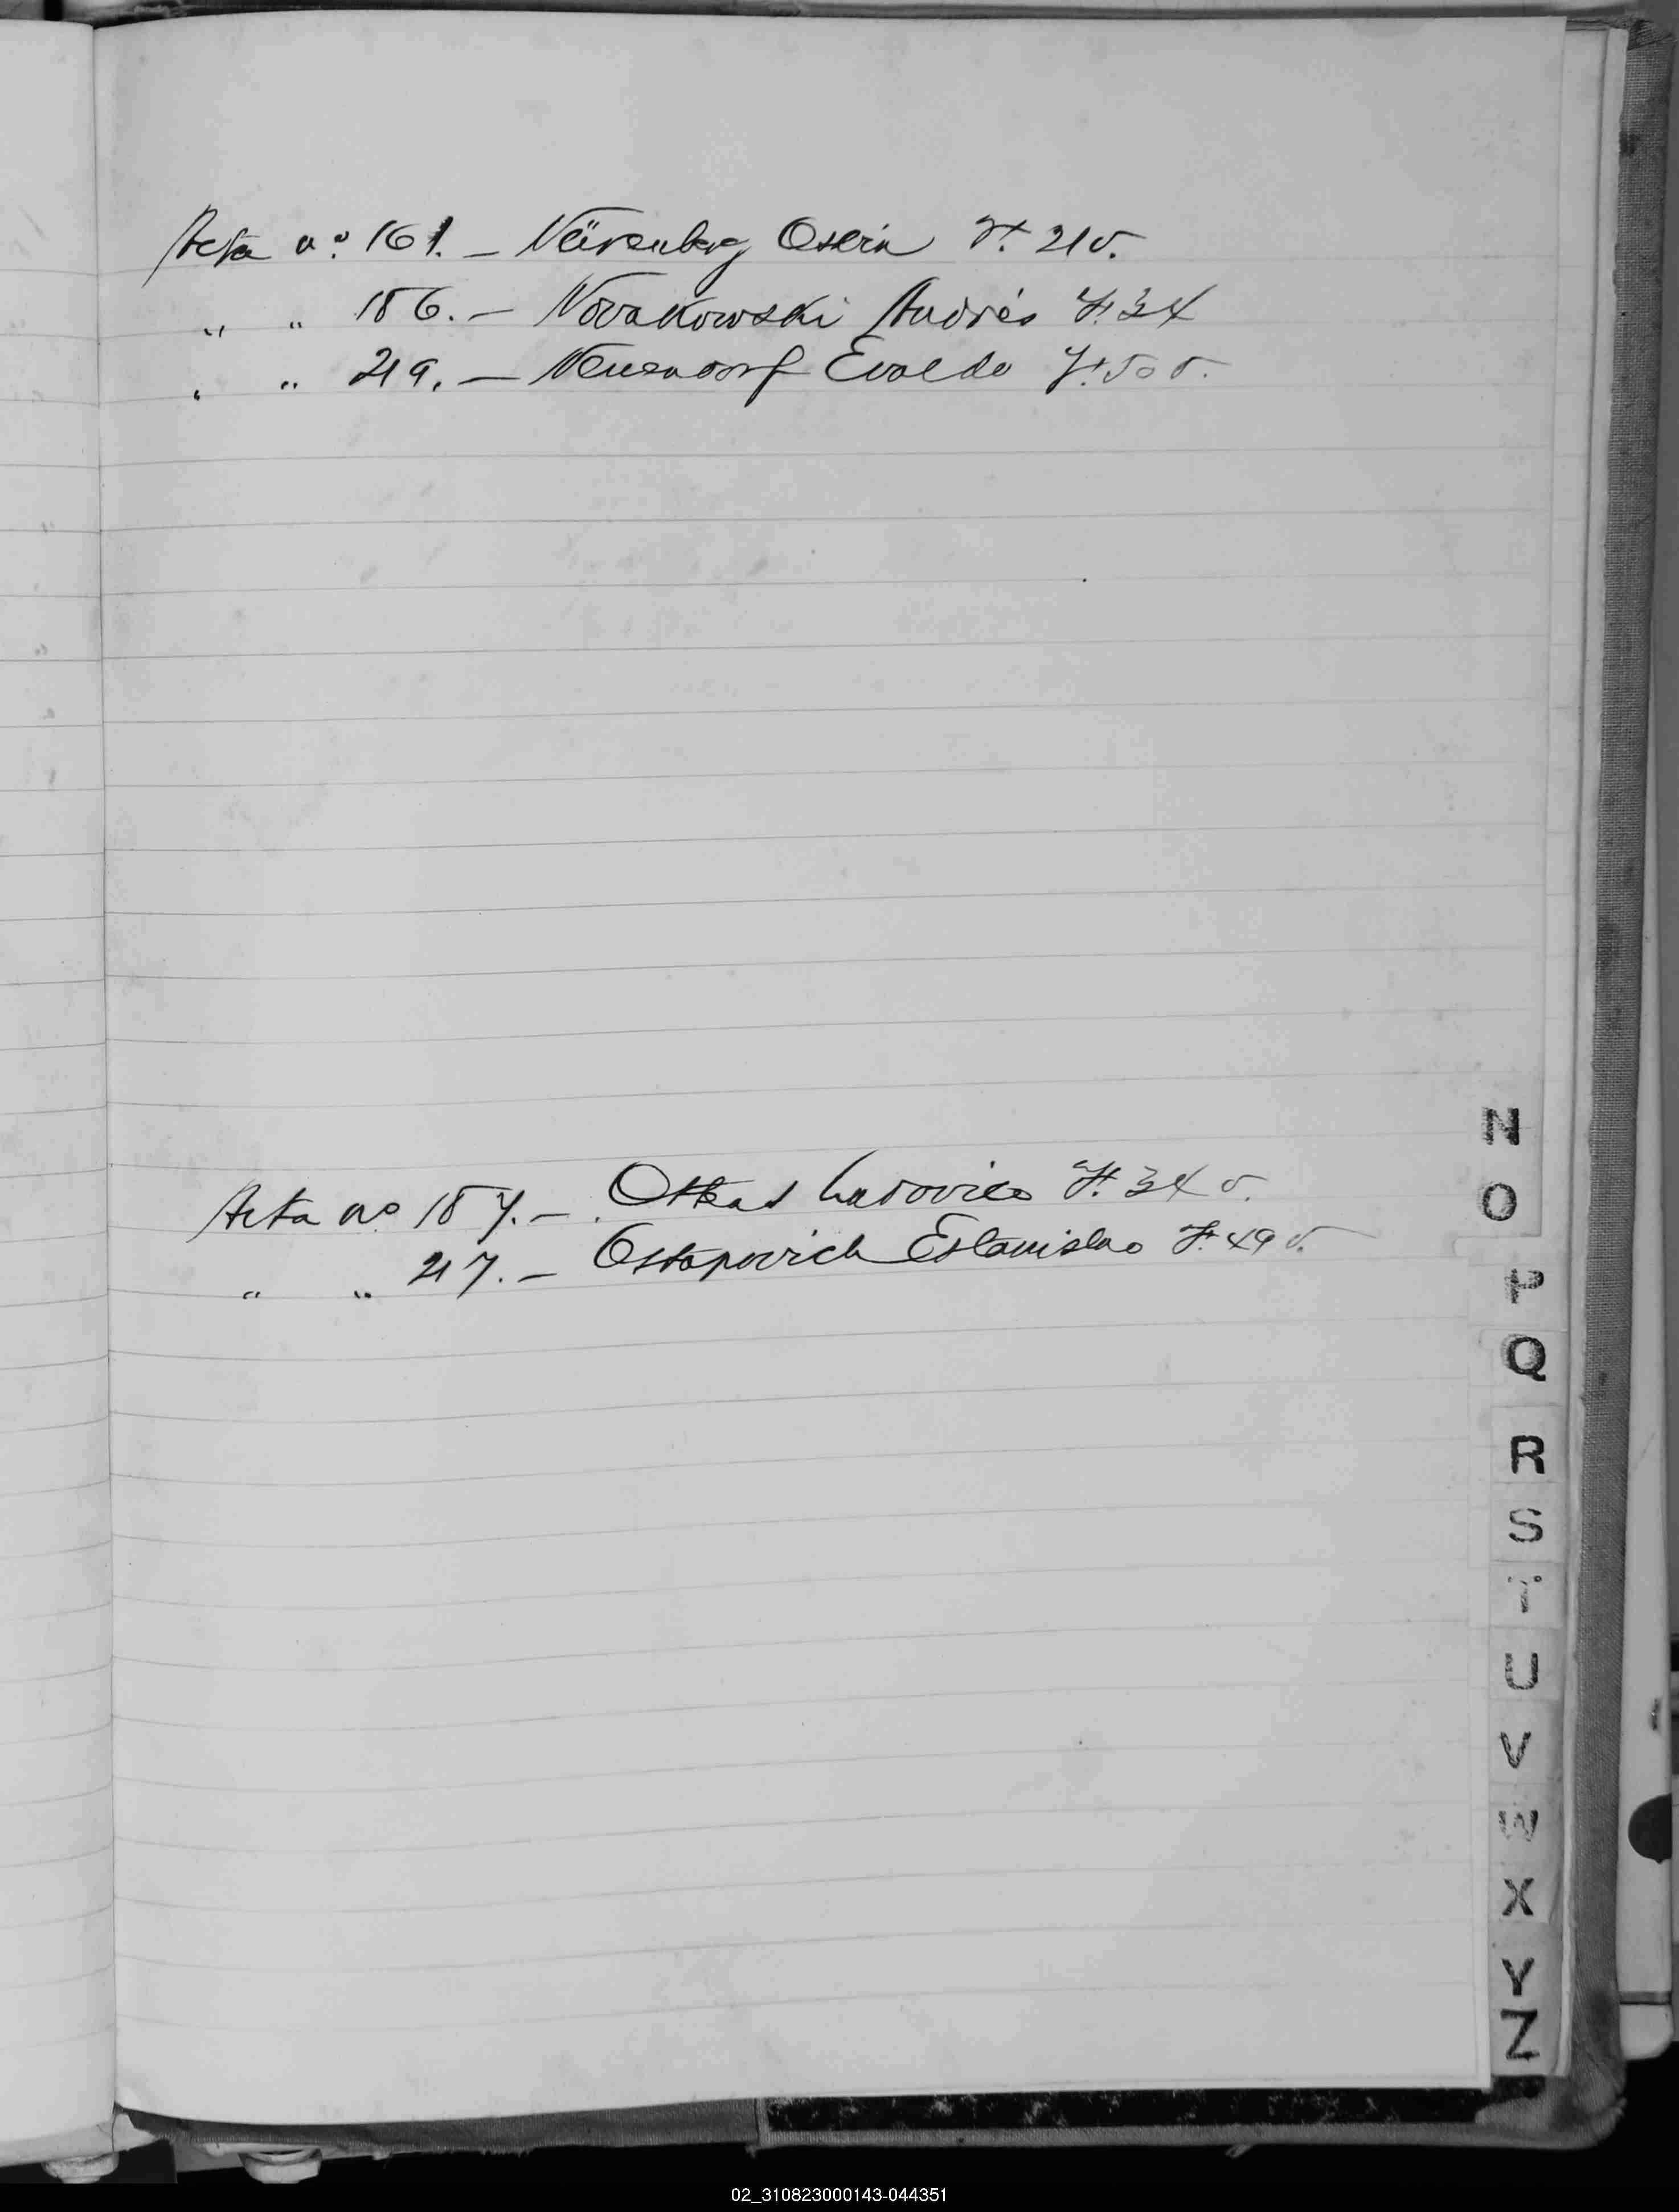 Acta nº 161. — Nürenberg F. 21 v.
" " 186. — Novakowski Andrés F. 34
" " 219. — Neuendorf Evaldo F. 50 v.
N
O
Acta nº 187. — Ludovico F. 34 v.
" " 217. — Ostapovich Estanislao F. 49 v.
P
Q
R
S
T
U
V
W
X
Y
Z
02_310823000143-044351